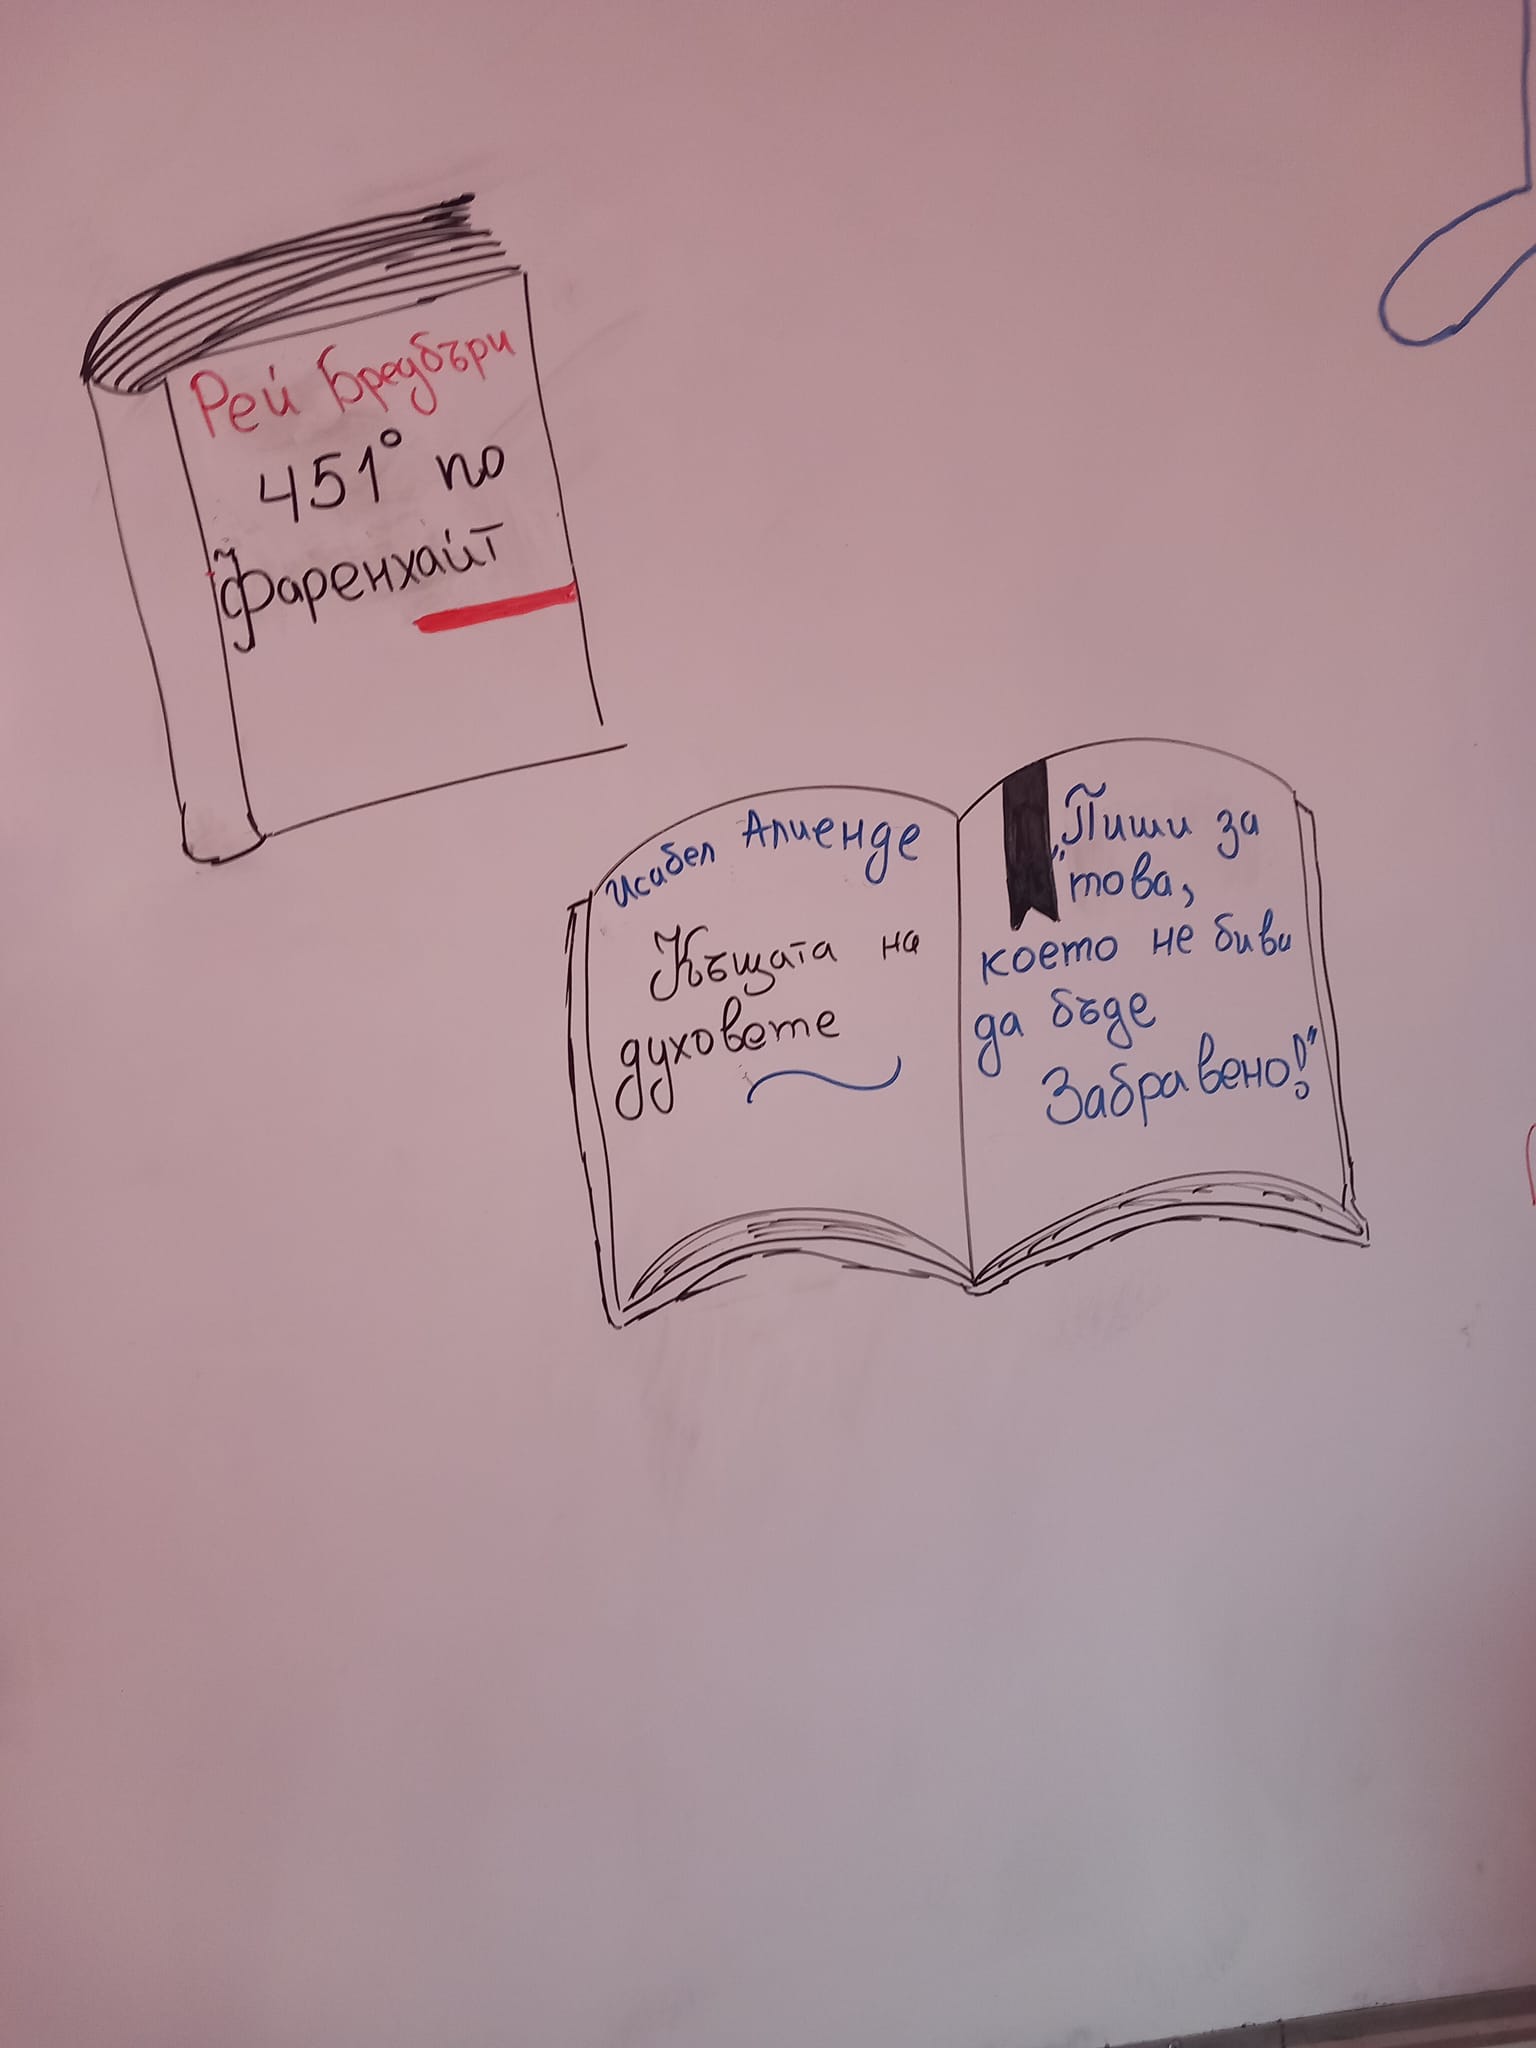 Рей Бредбъри
451° по
Фаренхайт
Исабел Алиенде
Къщата на
духовете
„Пиши за
това,
което не бива
да бъде
Забравено!"